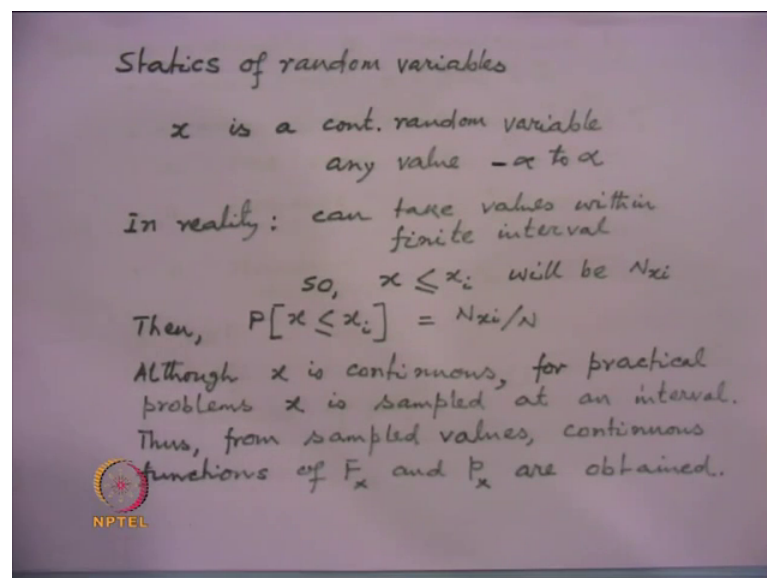 Statics of random variables
x is a cont. random variable
any value -α to α
In reality: can take values within
finite interval
so, x ≤ xi will be Nxi
Then, P[x ≤ xi] = Nxi/N
Although x is continuous, for practical
problems x is sampled at an interval.
Thus, from sampled values, continuous
functions of Fx and Px are obtained.
NPTEL